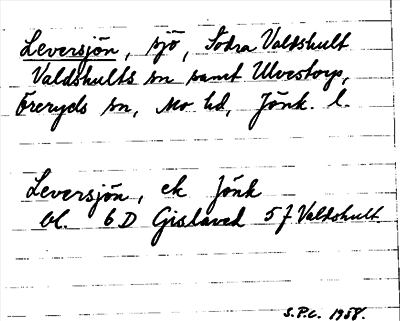 Leversjön, sjö, Södra Valdshult
Valdshults sn samt Ulvestorp,
Öreryds sn, Mo hd, Jönk. l.
Leversjön, ek Jönk
bl. 6 D Gislaved 5 f Valdshult
S.P.C. 1958.